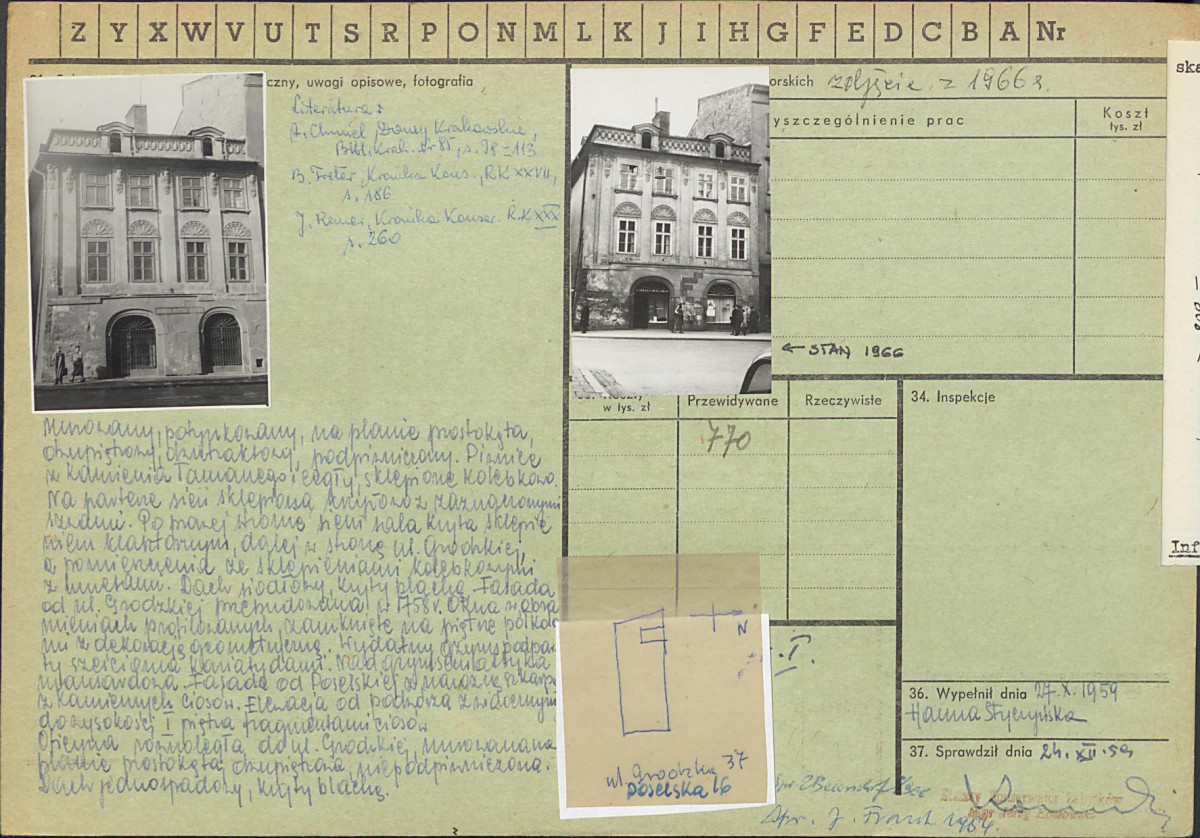 Z Y X W V U T S R P O N M L K J I H G F E D C B A Nr
czny, uwagi opisowe, fotografia
Literatura:
A. Chmiel, Domy Krakowskie,
Bibl. Krak. Nr 81, s. 98-113
B. Treter, Kronika Kons., R.K XXVII,
s. 186
J. Remer, Kronika Konser. R.K XXX
s. 260
Murowany, potynkowany, na planie prostokąta,
dwupiętrowy, dwutraktowy, podpiwniczony. Piwnice
z kamienia łamanego i cegły, sklepione kolebkowo.
Na parterze sień sklepiona krzyżowo z zaznaczonymi
szwami. Po prawej stronie sieni sala kryta sklepie
niem klasztornym, dalej w stronę ul. Grodzkiej,
a pomieszczenia ze sklepieniami kolebkowymi
z lunetami. Dach siodłowy, kryty blachą. Fasada
od ul. Grodzkiej przebudowana w 1758 r. Okna w obra
mieniach profilowanych, zamknięte na piętrze półkola
mi z dekoracją geometryczną. Wydatny gzyms podpar
ty sześcioma kariatydami. Nad gzymsem attyka
mansardowa. Fasada od Poselskiej z narożną szkarpą
z kamiennych ciosów. Elewacja od podwórza z widocznymi
do wysokości I piętra fragmentami ciosów.
Oficyna równoległa do ul. Grodzkiej, murowana na
planie prostokąta, dwupiętrowa, niepodpiwniczona.
Dach jednospadowy, kryty blachą.
orskich zdjęcie z 1966 r.
yszczególnienie prac
Koszt
tys. zł
← STAN 1966
Koszty
w tys. zł
Przewidywane
Rzeczywiste
770
34. Inspekcje
N
ul. Grodzka 37
Poselska 16
I.
36. Wypełnił dnia 27.X.1959
Hanna Styczyńska
37. Sprawdził dnia 24.XI.59
Spr. J. Frazik 1984.
ska
Inf